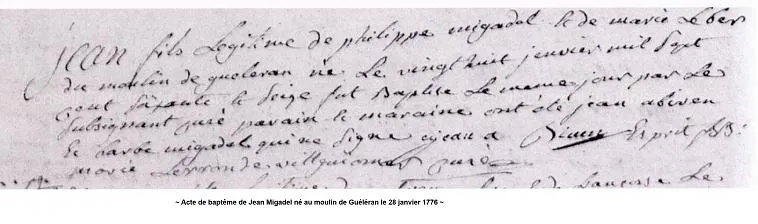 jean fils Legitime de philippe migadel et de marie Le ber
du moulin de gueleran né Le vingthuit janvier mil Sept
cent Soixante et Seize fut Baptisé Le meme jour par Le
Subsignant curé parain et maraine ont été jean abiven
et barbe migadel qui ne Signe
marie curé
~ Acte de baptême de Jean Migadel né au moulin de Guéléran le 28 janvier 1776 ~